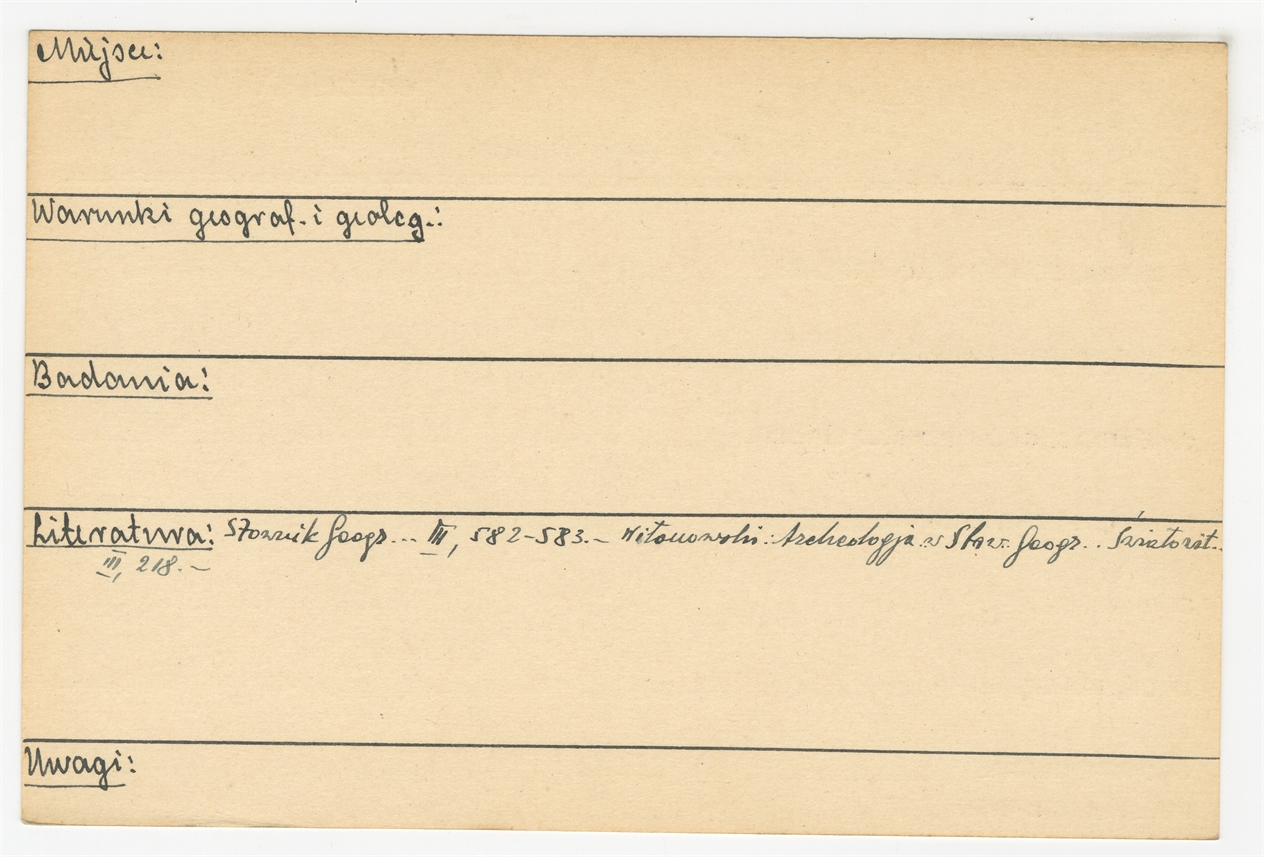 Miejsce:
Warunki geograf. i geolog.:
Badania:
Literatura: Słownik Geogr... III, 582-583.- Witanowski: Archeologja w Słow. Geogr.. Światowit..
III, 218.-
Uwagi: